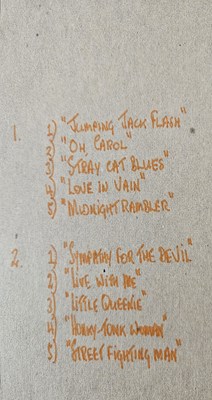 1. 1) "JUMPING JACK FLASH"
2) "OH CAROL"
3) "STRAY CAT BLUES"
4) "LOVE IN VAIN"
5) "MIDNIGHT RAMBLER"
2. 1) "SYMPATHY FOR THE DEVIL"
2) "LIVE WITH ME"
3) "LITTLE QUEENIE"
4) "HONKY TONK WOMAN"
5) "STREET FIGHTING MAN"